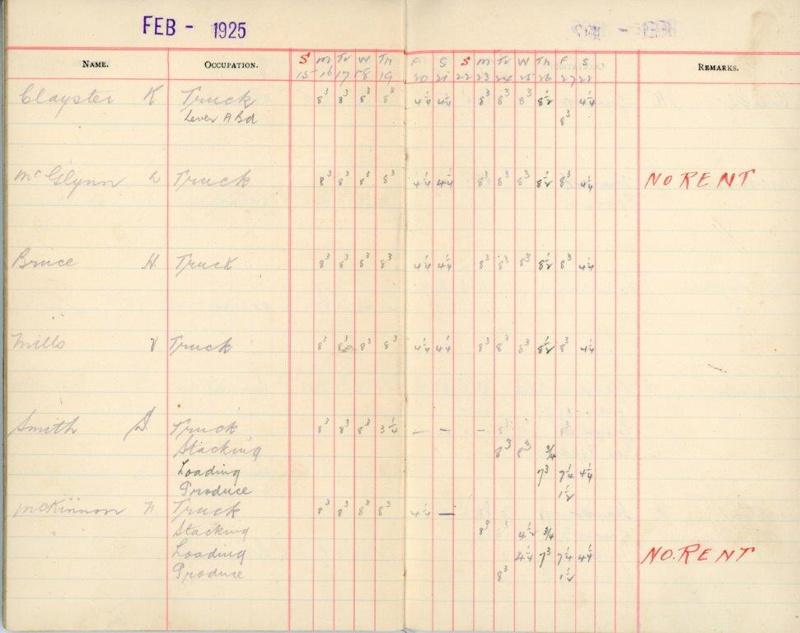 FEB - 1925
NAME. OCCUPATION. S M Tu W Th F S S M Tu W Th F S REMARKS.
15 16 17 18 19 20 21 22 23 24 25 26 27 28
Clayster K Truck 8³ 8³ 8³ 8³ 4¼ 4¼ 8³ 8³ 8³ 8½ 4¼
Lever A Bd 8³
McGlynn L Truck 8³ 8³ 8³ 8³ 4¼ 4¼ 8³ 8³ 8³ 8½ 8³ 4¼ NO RENT
Bruce H Truck 8³ 8³ 8³ 8³ 4¼ 4¼ 8³ 8³ 8³ 8½ 8³ 4¼
Mills Truck 8³ 8³ 8³ 4¼ 4¼ 8³ 8³ 8³ 8½ 8³ 4¼
Smith D Truck 8³ 8³ 8³ 3¼ — — —
Stacking 8³ 8³ ¾
Loading 7³ 7¼ 4¼
Produce 1½
McKinnon N Truck 8³ 8³ 8³ 8³ 4¼ —
Stacking 8³ 4½ ¾
Loading 4¼ 7³ 7¼ 4¼ NO. RENT
Produce 8³ 1½